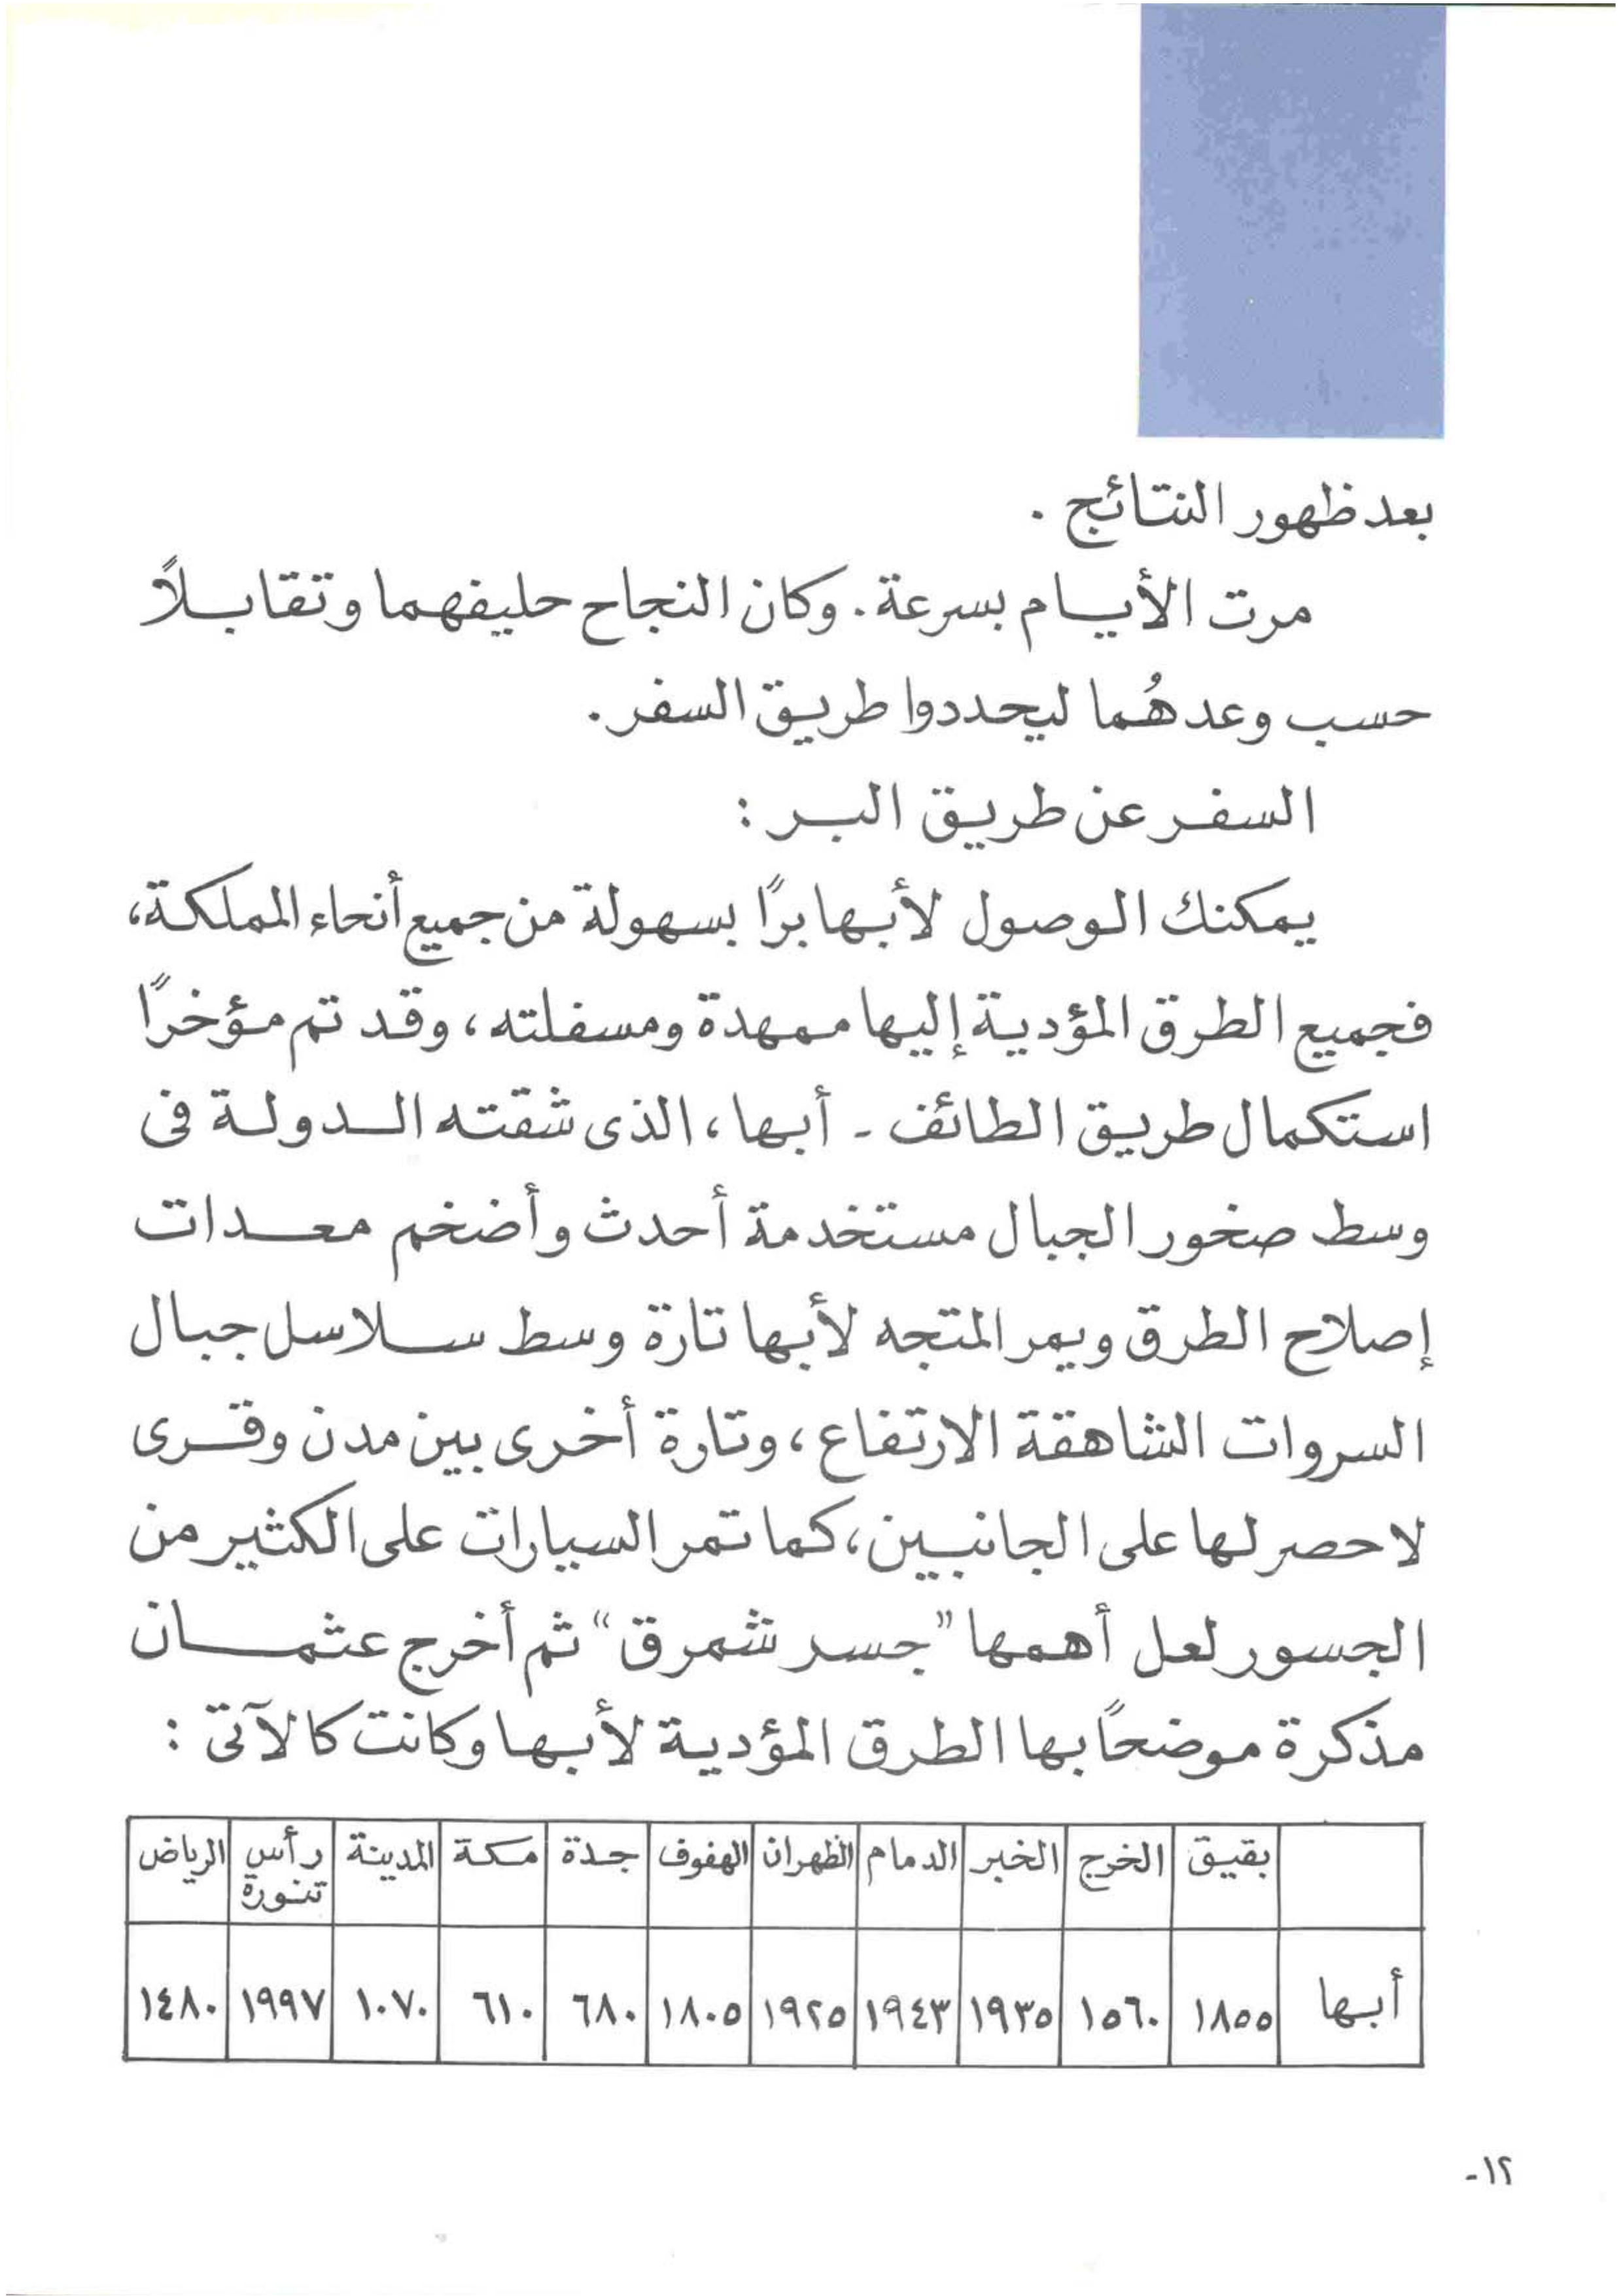 بعد ظهور النتائج .
مرت الأيام بسرعة . وكان النجاح حليفهما وتقابلاً
حسب وعدهُما ليحددوا طريق السفر .
السفر عن طريق البر :
يمكنك الوصول لأبها برًا بسهولة من جميع أنحاء المملكة،
فجميع الطرق المؤدية إليها ممهدة ومسفلته ، وقد تم مؤخرًا
استكمال طريق الطائف - أبها ، الذى شقته الدولة فى
وسط صخور الجبال مستخدمة أحدث وأضخم معدات
إصلاح الطرق ويمر المتجه لأبها تارة وسط سلاسل جبال
السروات الشاهقة الارتفاع ، وتارة أخرى بين مدن وقرى
لا حصر لها على الجانبين ، كما تمر السيارات على الكثير من
الجسور لعل أهمها "جسر شمرق" ثم أخرج عثمان
مذكرة موضحًا بها الطرق المؤدية لأبها وكانت كالآتى :
بقيق الخرج الخبر الدمام الظهران الهفوف جدة مكة المدينة رأس تنورة الرياض
أبها ١٨٥٥ ١٥٦٠ ١٩٣٥ ١٩٤٣ ١٩٢٥ ١٨٠٥ ٦٨٠ ٦١٠ ١٠٧٠ ١٩٩٧ ١٤٨٠
١٢-